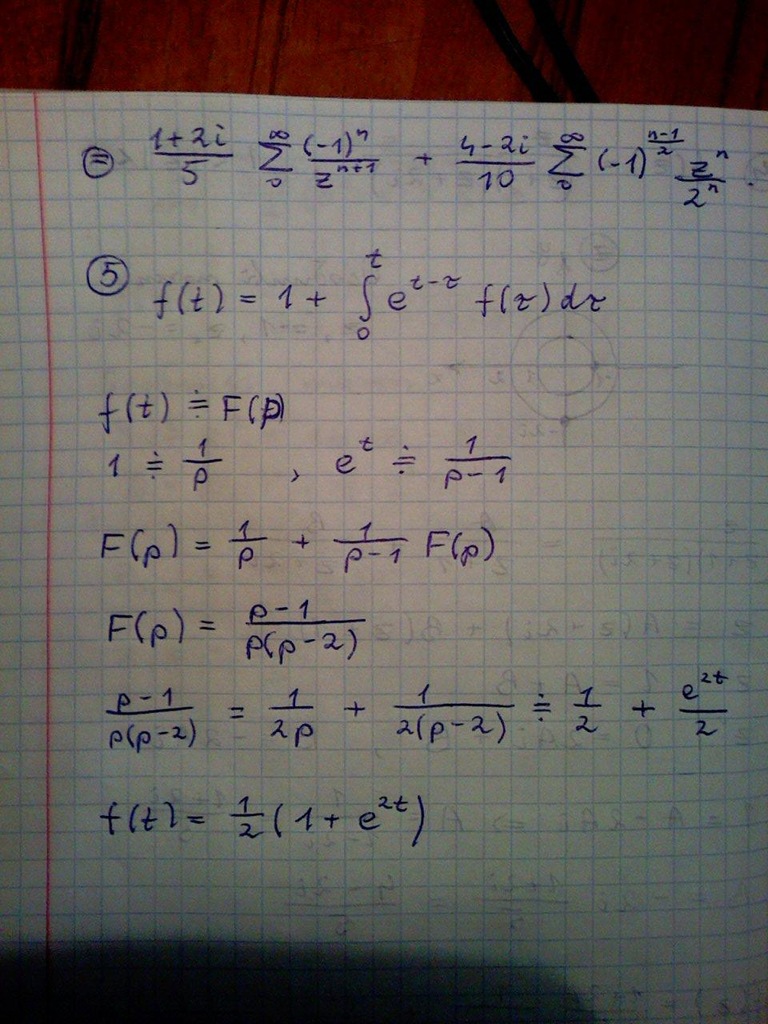 ⊜ \frac{1+2i}{5} \sum_{0}^{∞} \frac{(-1)^n}{z^{n+1}} + \frac{4-2i}{10} \sum_{0}^{∞} (-1)^{\frac{n-1}{2}} \frac{z^n}{2^n}.
⑤ f(t) = 1 + \int_{0}^{t} e^{t-τ} f(τ) dτ
f(t) ≑ F(p)
1 ≑ \frac{1}{p} , e^t ≑ \frac{1}{p-1}
F(p) = \frac{1}{p} + \frac{1}{p-1} F(p)
F(p) = \frac{p-1}{p(p-2)}
\frac{p-1}{p(p-2)} = \frac{1}{2p} + \frac{1}{2(p-2)} ≑ \frac{1}{2} + \frac{e^{2t}}{2}
f(t) = \frac{1}{2} (1 + e^{2t})